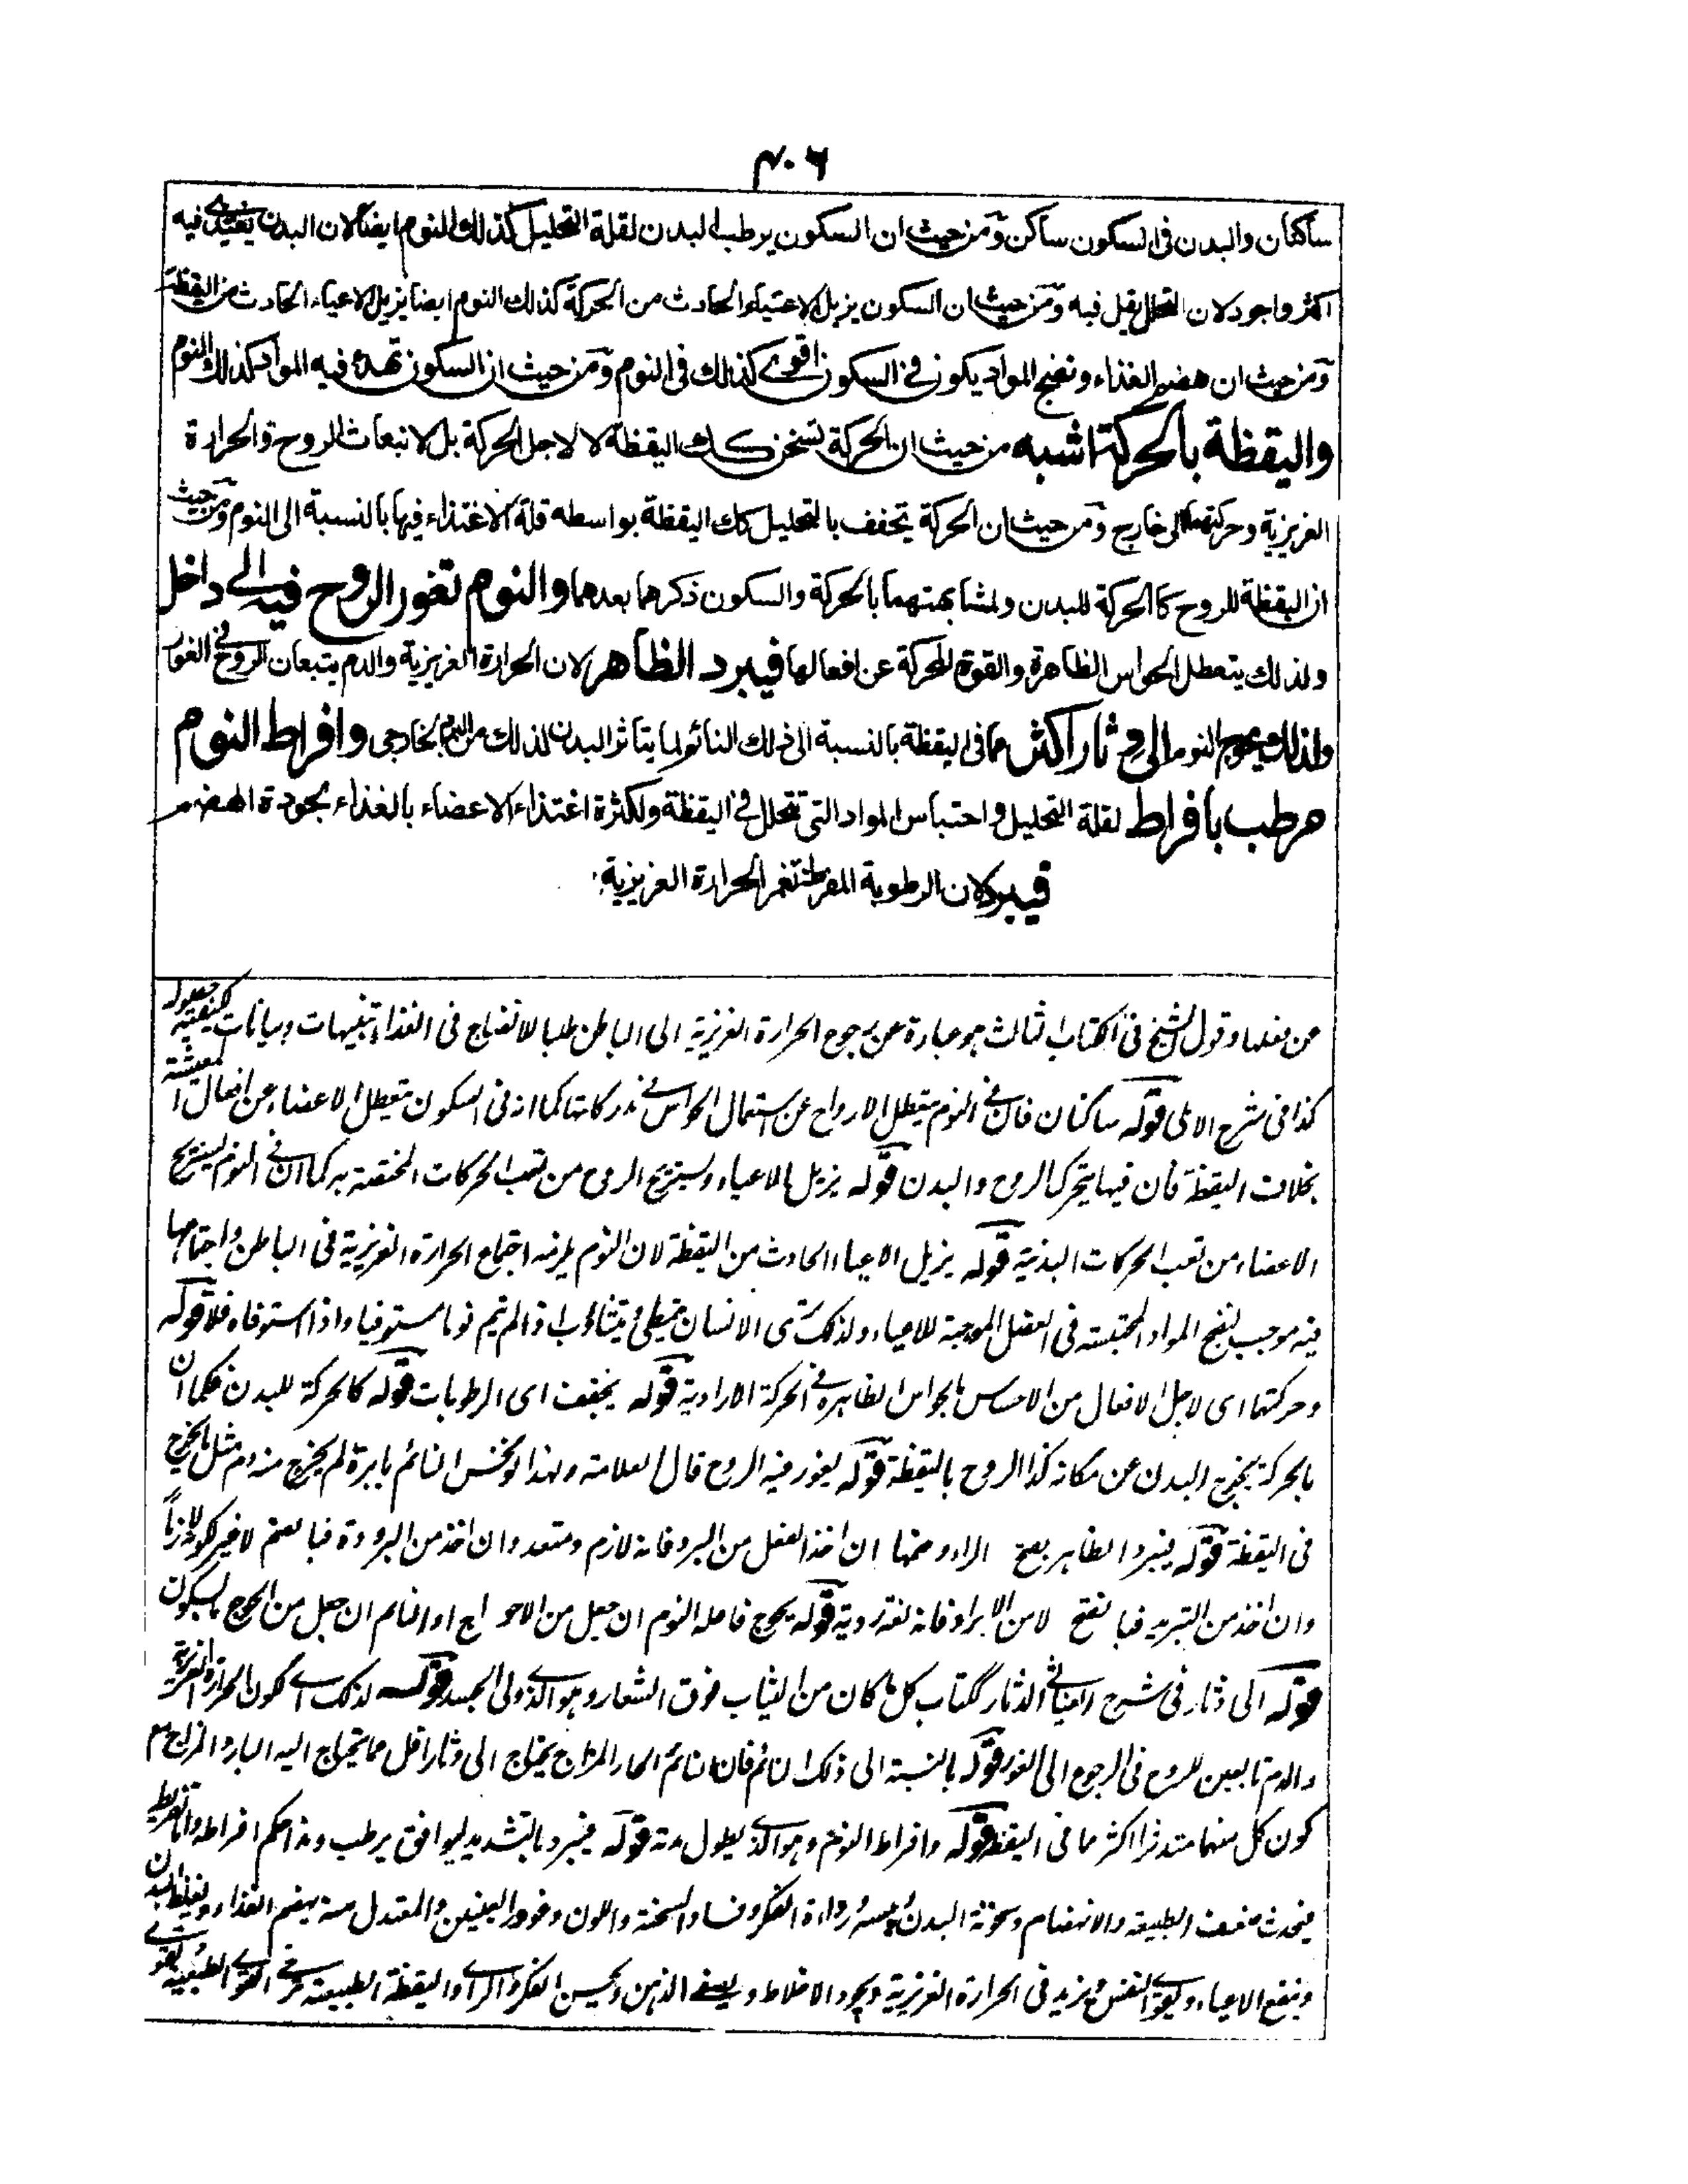 ۴۰۶
ساكنان والبدن فى السكون ساكن ومن حيث ان السكون يرطب البدن لقلة التحليل كذلك النوم ايضا لان البدن يغتذى فيه
اكثر واجود لان التحلل يقل فيه ومن حيث ان السكون يزيل الاعياء الحادث من الحركة كذلك النوم ايضا يزيل الاعياء الحادث من اليقظة
ومن حيث ان هضم الغذاء ونضج المواد يكون فى السكون اقوى كذلك فى النوم ومن حيث ان السكون تهدء فيه المواد كذلك النوم
واليقظة بالحركة اشبه من حيث ان الحركة تسخن كك اليقظة لا لاجل الحركة بل لانبعاث الروح والحرارة
الغريزية وحركتهما الى خارج ومن حيث ان الحركة تجفف بالتحليل كك اليقظة بواسطه قلة الاغتذاء فيها بالنسبة الى النوم ومن حيث
ان اليقظة للروح كالحركة للبدن ولمشابهتهما بالحركة والسكون ذكرهما بعدهما والنوم تغور الروح فيه الى داخل
ولذلك يتعطل الحواس الظاهرة والقوة المحركة عن افعالها فيبرد الظاهر لان الحرارة الغريزية والدم يتبعان الروح فى الغور
ولذلك يحوج النوم الى دثار اكثر مما فى اليقظة بالنسبة الى ذلك النائم لما يتاثر البدن لذلك من الخارجى وافراط النوم
مرطب بافراط لقلة التحليل واحتباس المواد التى تتحلل فى اليقظة ولكثرة اغتذاء الاعضاء بالغذاء بجودة الهضم
فيبرد لان الرطوبة المفرطة تغمر الحرارة الغريزية
من فعلها وقول الشيخ فى الكتاب الثالث هو عبارة عن رجوع الحرارة الغريزية الى الباطن طلبا للانضاج فى الغذاء تنبيهات وبيانات كيفية حصوله
كذا فى شرح الاملى قوله ساكنان فان فى النوم يتعطل الارواح عن استعمال الحواس كما انه فى السكون يتعطل الاعضاء عن افعال
بخلاف اليقظة فان فيها يتحرك الروح والبدن قوله يزيل الاعياء ويستريح الروح من تعب الحركات المختصة به كما ان فى النوم يستريح
الاعضاء من تعب الحركات البدنية قوله يزيل الاعياء الحادث من اليقظة لان النوم يلزمه اجتماع الحرارة الغريزية فى الباطن واجتماعها
فيه موجب لنضج المواد المحتبسة فى العضل الموجبة للاعياء ولذلك ترى الانسان يتمطى ويتثاءب اذا لم ينم نوما مستوفيا واذا استوفاه فلا قوله
وحركتهما اى لاجل الافعال من الاحساس بالحواس الظاهرة فى الحركة الارادية قوله يجفف اى الرطوبات قوله كالحركة للبدن فكما ان
بالحركة يخرج البدن عن مكانه كذا الروح باليقظة قوله يغور فيه الروح قال العلامة ولهذا لو نخس النائم بابرة لم يخرج منه دم مثل ما يخرج
فى اليقظة قوله فيبرد الظاهر بفتح الراء وضمها ان اخذ الفعل من البرد فانه لازم ومتعد وان اخذ من البرودة فبالضم لا غير لكونه لازما
وان اخذ من التبريد فبالفتح لا من الابراد فانه لغة ردية قوله يحوج فاعله النوم ان جعل من الاحواج او النائم ان جعل من الحوج بالسكون
قوله الى دثار فى شرح الدثار ككتاب كل ما كان من الثياب فوق الشعار وهو الذى ولى الجسد قوله لذلك اى لكون الحرارة الغريزية
والدم تابعين للروح فى الرجوع الى الغور قوله بالنسبة الى ذلك النائم فان النائم الحار المزاج يحتاج الى دثار اقل مما يحتاج اليه البارد المزاج مع
كون كل منهما متدثرا اكثر مما فى اليقظة قوله وافراط النوم وهو الذى يطول مدته قوله فيبرد بالتشديد ليوافق يرطب وهذا حكم افراطه واما تفريطه
فيحدث ضعف الطبيعة والانهضام وسخونة البدن ويبسه ورداءة الفكر وفساد السحنة واللون وغور العينين والمعتدل منه يهضم الغذاء البدن
وينفع الاعياء ويقوى النفس ويزيد فى الحرارة الغريزية ويجود الاخلاط ويصفى الذهن ويحسن الفكر والراى واليقظة الطبيعية القوى الطبيعية